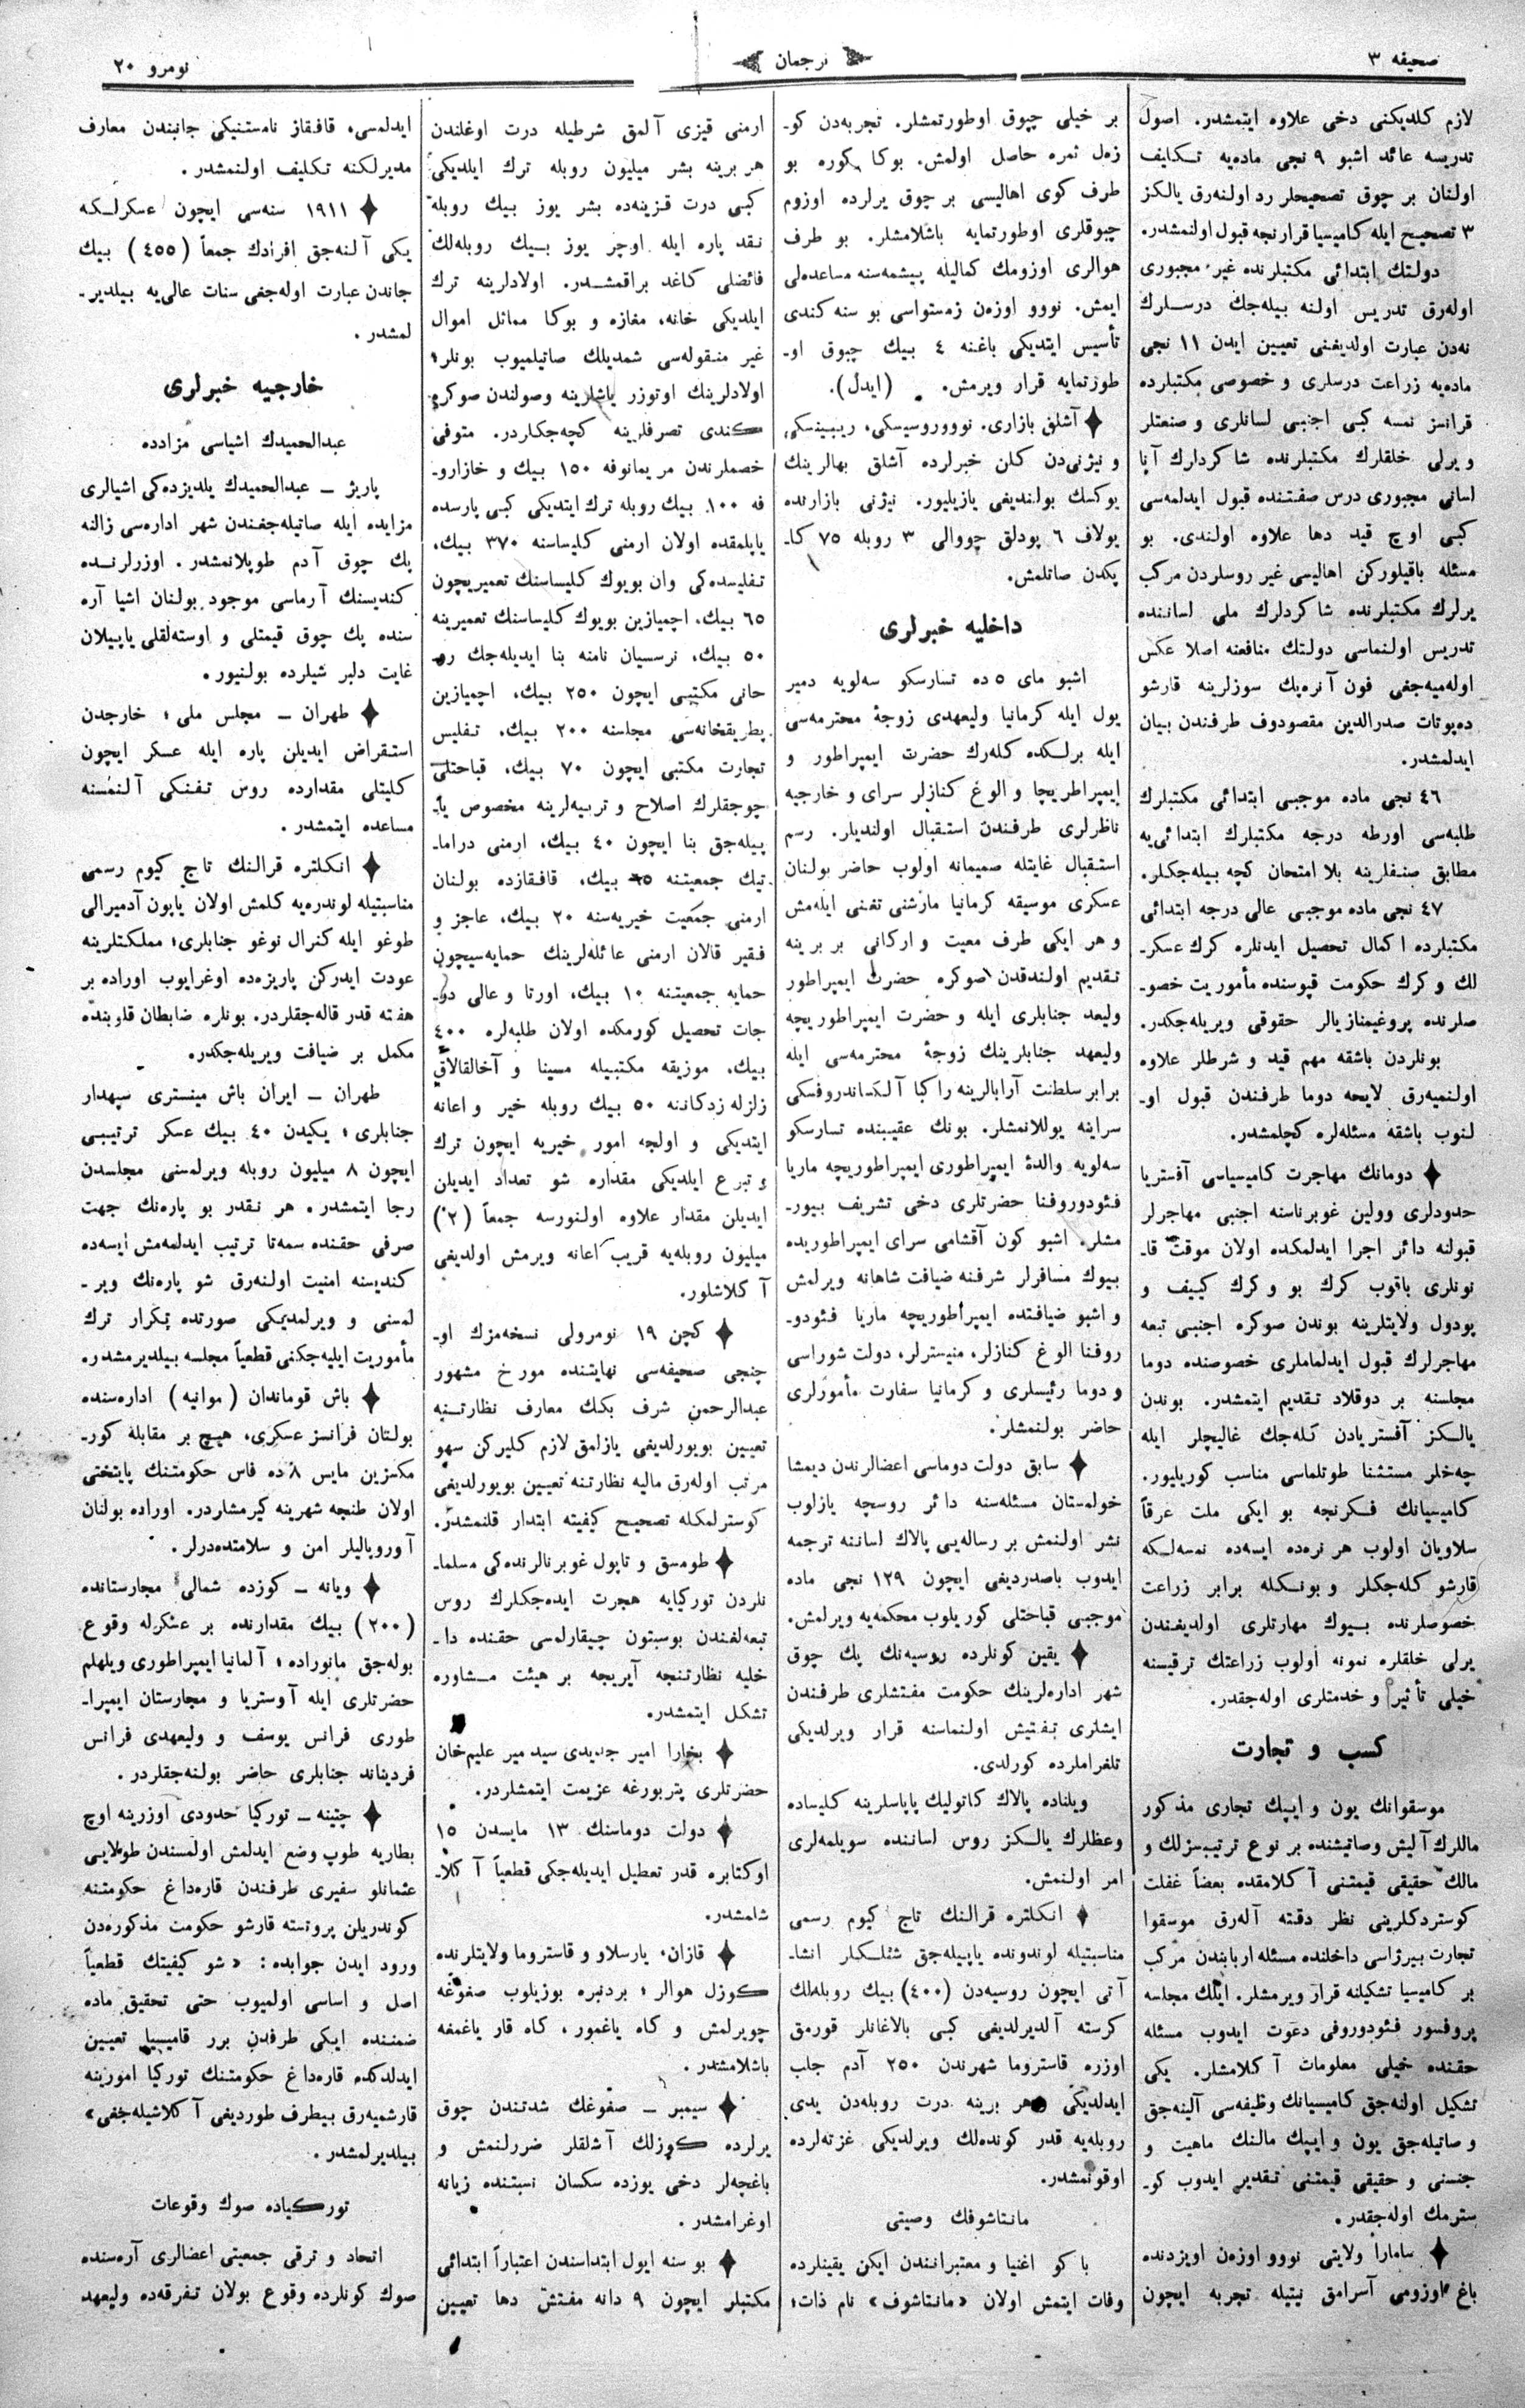 صحیفه ٣
ترجمان
نومرو ٢٠
لازم کلدیکنی دخی علاوه ایتمشدر. اصول
تدریسه عائد اشبو ٩ نجی ماده‌یه تـکلیف
اولنان بر چوق تصحیحلر رد اولنه‌رق یالکز
٣ تصحیح ایله کامیسیا قرارنجه قبول اولنمشدر.
دولتك ابتدائی مکتبلرنده غیر مجبوری
اوله‌رق تدریس اولنه بیله‌جك درسـلرك
نه‌دن عبارت اولدیغنی تعیین ایدن ١١ نجی
ماده‌یه زراعت درسلری و خصوصی مکتبلرده
فرانسز نمسه کبی اجنبی لسانلری و صنعتلر
و یرلی خلقلرك مکتبلرنده شاکردلرك آنا
لسانی مجبوری درس صفتنده قبول ایدلمه‌سی
کبی اوچ قید دها علاوه اولندی. بو
مسئله باقیلورکن اهالیسی غیر روسلردن مرکب
یرلرك مکتبلرنده شاکردلرك ملی لساننده
تدریس اولنماسی دولتك منافعنه اصلا عکس
اوله‌میه‌جغی فون آنره‌پك سوزلرینه قارشو
ده‌پوتات صدرالدین مقصودوف طرفندن بیان
ایدلمشدر.
٤٦ نجی ماده موجبی ابتدائی مکتبلرك
طلبه‌سی اورطه درجه مکتبلرك ابتدائی‌یه
مطابق صنفلرینه بلا امتحان کچه بیله‌جکلر.
٤٧ نجی ماده موجبی عالی درجه ابتدائی
مکتبلرده اکمال تحصیل ایدنلره کرك عسکر-
لك و کرك حکومت قپوسنده مأموریت خصو-
صلرنده پروغیمنازیالر حقوقی ویریله‌جکدر.
بونلردن باشقه مهم قید و شرطلر علاوه
اولنمیه‌رق لایحه دوما طرفندن قبول او-
لنوب باشقه مسئله‌لره کچلمشدر.
دومانك مهاجرت کامیسیاسی آفستریا
حدودلری وولین غوبرناسنه اجنبی مهاجرلر
قبولنه دائر اجرا ایدلمکده اولان موقت قا-
نونلری باقوب کرك بو و کرك کییف و
پودول ولایتلرینه بوندن صوکره اجنبی تبعه
مهاجرلرك قبول ایدلماملری خصوصنده دوما
مجلسنه بر دوقلاد تـقدیم ایتمشدر. بوندن
یالـکز آفستریادن کله‌جك غالیچلر ایله
چه‌خلر مستثنا طوتلماسی مناسب کوریلیور.
کامیسیانك فـکرنجه بو ایکی ملت عرقاً
سلاویان اولوب هر نره‌ده ایسه‌ده نمسه‌لـکه
قارشو کله‌جکلر و بونـکله برابر زراعت
خصوصلرنده بـیوك مهارتلری اولدیغندن
یرلی خلقلره نمونه اولوب زراعتك ترقیسنه
خیلی تأثیر و خدمتلری اوله‌جقدر.
کسب و تجارت
موسقوانك یون و ایپك تجاری مذکور
ماللرك آلیش وصاتیشنده بر نوع ترتیبسزلك و
مالك حقیقی قیمتنی آکلامقده بعضاً غفلت
کوستردکلرینی نظر دقته آله‌رق موسقوا
تجارت بیرژاسی داخلنده مسئله اربابندن مرکب
بر کامیسیا تشکیلنه قرار ویرمشلر. ایلك مجلسه
پروفسور فئودوروفی دعوت ایدوب مسئله
حقنده خیلی معلومات آکلامشلر. یکی
تشکیل اولنه‌جق کامیسیانك وظیفه‌سی آلینه‌جق
و صاتیله‌جق یون و ایپك مالنك ماهیت و
جنسنی و حقیقی قیمتنی تـقدیر ایدوب کو-
سترمك اوله‌جقدر.
سامارا ولایتی نووو اوزەن اویزدنده
باغ اوزومی آسرامق نیتیله تجربه ایچون
بر خیلی چبوق اوطورتمشلر. تجربه‌دن کو-
زەل ثمره حاصل اولمش. بوکا کوره بو
طرف کوی اهالیسی بر چوق یرلرده اوزوم
چبوقلری اوطورتمایه باشلامشلر. بو طرف
هوالری اوزومك کمالیله پیشمه‌سنه مساعده‌لی
ایمش. نووو اوزەن زمستواسی بو سنه کندی
تأسیس ایتدیکی باغنه ٤ بیك چبوق او-
طورتمایه قرار ویرمش. (ایدل).
آشلق بازاری. نووو‌روسیسکی، ریبینسکی
و نیژنی‌دن کلن خبرلرده آشلق بهالرینك
یوکسك بولندیغی یازیلیور. نیژنی بازارنده
یولاف ٦ پودلق چووالی ٣ روبله ٧٥ کا-
پکدن صاتلمش.
داخلیه خبرلری
اشبو مای ٥ ده تسارسکو سه‌لویه دمیر
یول ایله کرمانیا ولیعهدی زوجهٔ محترمه‌سی
ایله برلـکده کله‌رك حضرت ایمپراطور و
ایمپراطریچا و الوغ کنازلر سرای و خارجیه
ناظرلری طرفندن استـقبال اولندیلر. رسم
استـقبال غایتله صمیمانه اولوب حاضر بولنان
عسکری موسیقه کرمانیا مارشنی تغنی ایله‌مش
و هر ایکی طرف معیت و ارکانی بر برینه
تـقدیم اولندقدن صوکره حضرت ایمپراطور
ولیعد جنابلری ایله و حضرت ایمپراطوریچه
ولیعهد جنابلرینك زوجهٔ محترمه‌سی ایله
برابر سلطنت آرابالرینه راکبا آلـکساندروفسکی
سراینه یوللانمشلر. بونك عقیبنده تسارسکو
سه‌لویه والدهٔ ایمپراطوری ایمپراطوریچه ماریا
فئودوروفنا حضرتلری دخی تشریف بیور-
مشلر. اشبو کون آقشامی سرای ایمپراطوریده
بیوك مسافرلر شرفنه ضیافت شاهانه ویرلمش
و اشبو ضیافتده ایمپراطوریچه ماریا فئودو-
روفنا الوغ کنازلر، منیسترلر، دولت شوراسی
و دوما رئیسلری و کرمانیا سفارت مأمورلری
حاضر بولنمشلر.
سابق دولت دوماسی اعضالرندن دیمشا
خولمستان مسئله‌سنه دائر روسچه یازلوب
نشر اولنمش بر رساله‌یی پالاك لساننه ترجمه
ایدوب باصدردیغی ایچون ١٢٩ نجی ماده
موجبی قباحتلی کوریلوب محکمه‌یه ویرلمش.
یقین کونلرده روسیه‌نك پك چوق
شهر اداره‌لرینك حکومت مفتشلری طرفندن
ایشلری تفتیش اولنماسنه قرار ویرلدیکی
تلغراملرده کورلدی.
ویلناده پالاك کاتولیك پاپاسلرینه کلیساده
وعظلرك یالـکز روس لساننده سویلمه‌لری
امر اولنمش.
انکلتره قرالنك تاج کیوم رسمی
مناسبتیله لوندونده یاپیله‌جق شنلـکلر انشا-
آتی ایچون روسیه‌دن (٤٠٠) بیك روبله‌لك
کرسته آلدیرلدیغی کبی بالاغانلر قورمق
اوزره قاستروما شهرندن ٢٥٠ آدم جلب
ایدلدیکی هر برینه درت روبله‌دن یدی
روبله‌یه قدر کونده‌لك ویرلدیکی غزته‌لرده
اوقونمشدر.
مانتاشوفك وصیتی
باکو اغنیا و معتبرانندن ایکن یقینلرده
وفات ایتمش اولان «مانتاشوف» نام ذات؛
ارمنی قیزی آلمق شرطیله درت اوغلندن
هر برینه بشر میلیون روبله ترك ایلدیکی
کبی درت قزینه‌ده بشر یوز بیك روبله
نقد پاره ایله اوچر یوز بـیك روبله‌لك
فائضلی کاغد براقمشـدر. اولادلرینه ترك
ایلدیکی خانه، مغازه و بوکا مماثل اموال
غیر منـقوله‌سی شمدیلك صاتیلمیوب بونلر؛
اولادلرینك اوتوزر یاشلرینه وصولندن صوکره
کندی تصرفلرینه کچه‌جکلردر. متوفی
خصملرندن مریمانوفه ١٥٠ بیك و خازارو-
فه ١٠٠ بیك روبله ترك ایتدیکی کبی پارسده
یاپلمقده اولان ارمنی کلیساسنه ٣٧٠ بیك،
تفلیسده‌کی وان بویوك کلیساسنك تعمیریچون
٦٥ بیك، اچمیازین بویوك کلیساسنك تعمیرینه
٥٠ بیك، نرسسیان نامنه بنا ایدیله‌جك رو-
حانی مکتبی ایچون ٢٥٠ بیك، اچمیازین
پطریقخانه‌سی مجلسنه ٢٠٠ بیك، تـفلیس
تجارت مکتبی ایچون ٧٠ بیك، قباحتلی
چوجقلرك اصلاح و تربیه‌لرینه مخصوص یا-
پیله‌جق بنا ایچون ٤٠ بیك، ارمنی دراما-
تیك جمعیتنه بیك، قافـقازده بولنان
ارمنی جمعیت خیریه‌سنه ٢٠ بیك، عاجز و
فـقیر قالان ارمنی عائله‌لرینك حمایه‌سیچون
حمایه جمعیتنه ١٠ بیك، اورتا و عالی در-
جات تحصیل کورمکده اولان طلبه‌لره ٤٠٠
بیك، موزیقه مکتبیله مسینا و آخالقالاق
زلزله زدکاننه ٥٠ بیك روبله خیر و اعانه
ایتدیکی و اولجه امور خیریه ایچون ترك
و تبرع ایلدیکی مقداره شو تعداد ایدیلن
ایدیلن مقدار علاوه اولنورسه جمعاً (٢)
میلیون روبله‌یه قریب اعانه ویرمش اولدیغی
آکلاشلور.
کچن ١٩ نومرولی نسخه‌مزك او-
چنجی صحیفه‌سی نهایتنده مورخ مشهور
عبدالرحمن شرف بکك معارف نظارتـنه
تعیین بویورلدیغی یازلمق لازم کلیرکن سهو
مرتب اوله‌رق مالیه نظارتنه تعیین بویورلدیغی
کوسترلمکله تصحیح کیفیته ابتدار قلنمشدر.
طومسق و تابول غوبرنالرنده‌کی مسلما-
نلردن تورکیایه هجرت ایده‌جکلرك روس
تبعه‌لغندن بوسبتون چیقارلمسی حقنده دا-
خلیه نظارتنجه آیریجه بر هیئت مـشاوره
تشکل ایتمشدر.
بخارا امیر جدیدی سید میر علیم‌خان
حضرتلری پتربورغه عزیمت ایتمشلردر.
دولت دوماسنك ١٣ مایسدن ١٥
اوکتابره قدر تعطیل ایدیله‌جکی قطعیاً آکلا-
شلمشدر.
قازان، یارسلاو و قاستروما ولایتلرنده
کوزل هوالر؛ بردنبره بوزیلوب صغوغه
چویرلمش و کاه یاغمور، کاه قار یاغمغه
باشلامشدر.
سیمبر – صغوغك شدتندن چوق
یرلرده کوزلك آشلقلر ضررلنمش و
باغچه‌لر دخی یوزده سکسان نسبتنده زیانه
اوغرامشدر.
بو سنه ایول ابتداسندن اعتباراً ابتدائی
مکتبلر ایچون ٩ دانه مفتش دها تعیین
ایدلمسی، قافـقاز نامستنیکی جانبندن معارف
مدیرلکنه تـکلیف اولنمشدر.
١٩١١ سنه‌سی ایچون عسکرلـکه
یکی آلنه‌جق افرادك جمعاً (٤٥٥) بیك
جاندن عبارت اوله‌جغی سنات عالی‌یه بیلدیر-
لمشدر.
خارجیه خبرلری
عبدالحمیدك اشیاسی مزادده
پاریژ – عبدالحمیدك یلدیزده‌کی اشیالری
مزایده ایله صاتیله‌جغندن شهر اداره‌سی زالنه
پك چوق آدم طوپلانمشدر. اوزرلرنـده
کندیسنك آرماسی موجود بولنان اشیا آره
سنده پك چوق قیمتلی و اوسته‌لقلی یاپیلان
غایت دلبر شیلرده بولنیور.
طهران – مجلس ملی؛ خارجدن
استـقراض ایدیلن پاره ایله عسکر ایچون
کلیتلی مقدارده روس تـفنـکی آلنمسنه
مساعده ایتمشدر.
انکلتره قرالنك تاج کیوم رسمی
مناسبتیله لوندره‌یه کلمش اولان یاپون آدمیرالی
طوغو ایله کنرال نوغو جنابلری؛ مملکتلرینه
عودت ایدرکن پاریزه‌ده اوغرایوب اوراده بر
هفته قدر قاله‌جقلردر. بونلره ضابطان قلوبنده
مکمل بر ضیافت ویریله‌جکدر.
طهران – ایران باش مینستری سپهدار
جنابلری؛ یکیدن ٤٠ بیك عسکر ترتیبی
ایچون ٨ میلیون روبله ویرلمسنی مجلسدن
رجا ایتمشدر. هر نـقدر بو پاره‌نك جهت
صرفی حقنده سمه‌تا ترتیب ایدلمه‌مش ایسه‌ده
کندیسنه امنیت اولنه‌رق شو پاره‌نك ویر-
لمسنی و ویرلمدیکی صورتده تکرار ترك
مأموریت ایلیه‌جکنی قطعیاً مجلسه بیلدیرمشدر.
باش قوماندان (موانیه) اداره‌سنده
بولنان فرانسز عسکری، هیچ بر مقابله کور-
مکسزین مایس ٨ ده فاس حکومتنك پایتختی
اولان طنجه شهرینه کیرمشلردر. اوراده بولنان
آوروپالیلر امن و سلامتده‌درلر.
ویانه – کوزده شمالی مجارستانده
(٢٠٠) بیك مقدارنده بر عسکرله وقوع
بوله‌جق مانوراده؛ آلمانیا ایمپراطوری ویلهلم
حضرتلری ایله آوستریا و مجارستان ایمپرا-
طوری فرانس یوسف و ولیعهدی فرانس
فردیناند جنابلری حاضر بولنه‌جقلردر.
چتینه – تورکیا حدودی اوزرینه اوچ
بطاریه طوپ وضع ایدلمش اولمسندن طولایی
عثمانلو سفیری طرفندن قاره‌داغ حکومتنه
کوندریلن پروتسته قارشو حکومت مذکوره‌دن
ورود ایدن جوابده: «شو کیفیتك قطعیاً
اصل و اساسی اولمیوب حتی تحقیق ماده
ضمننده ایکی طرفدن برر قامیسیا تعیین
ایدلدکده قاره‌داغ حکومتنك تورکیا امورینه
قارشمیه‌رق بیطرف طوردیغی آکلاشیله‌جغی»
بیلدیرلمشدر.
تورکیاده صوك وقوعات
اتحاد و ترقی جمعیتی اعضالری آره‌سنده
صوك کونلرده وقوع بولان تـفرقه‌ده ولیعهد